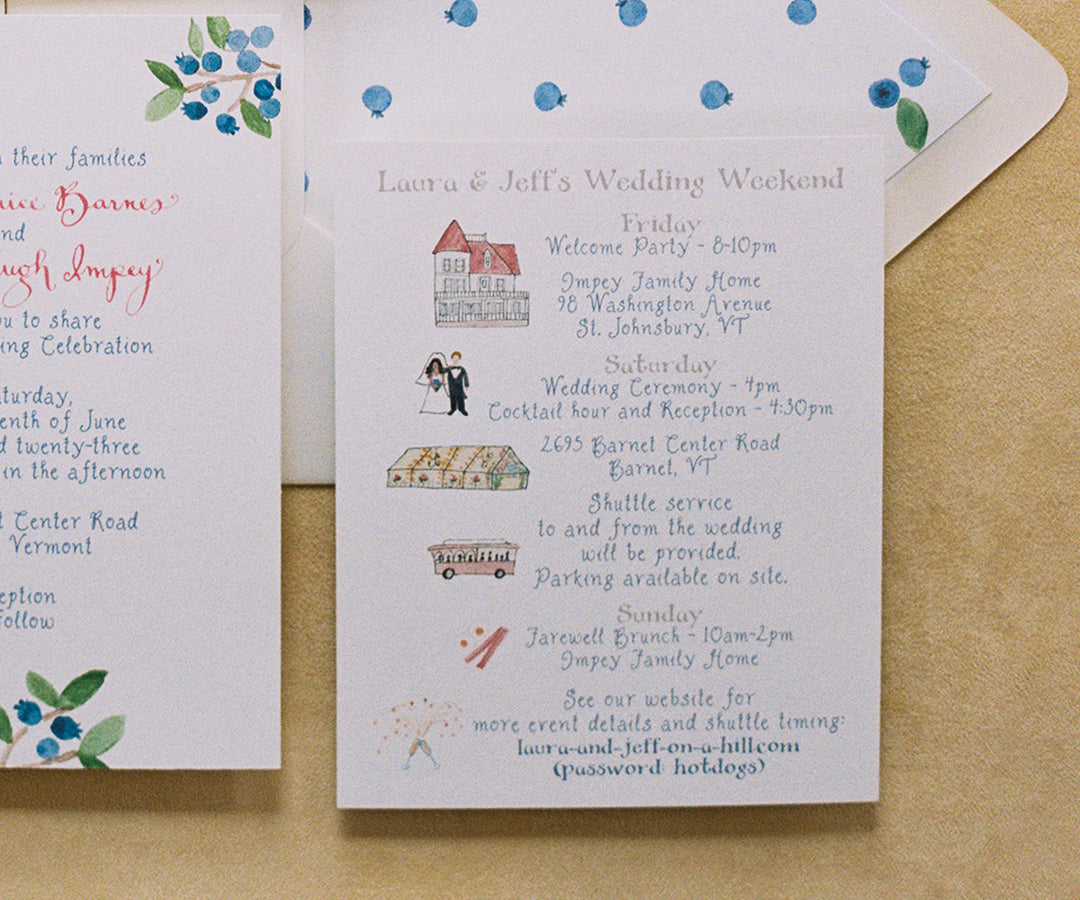 their families
Barnes
and
ugh Impey
you to share
ing Celebration
aturday,
enth of June
d twenty-three
in the afternoon
t Center Road
Vermont
eption
follow
Laura & Jeff's Wedding Weekend
Friday
Welcome Party - 8-10pm
Impey Family Home
98 Washington Avenue
St. Johnsbury, VT
Saturday
Wedding Ceremony - 4pm
Cocktail hour and Reception - 4:30pm
2695 Barnet Center Road
Barnet, VT
Shuttle service
to and from the wedding
will be provided.
Parking available on site.
Sunday
Farewell Brunch - 10am-2pm
Impey Family Home
See our website for
more event details and shuttle timing:
laura-and-jeff-on-a-hill.com
(password hotdogs)